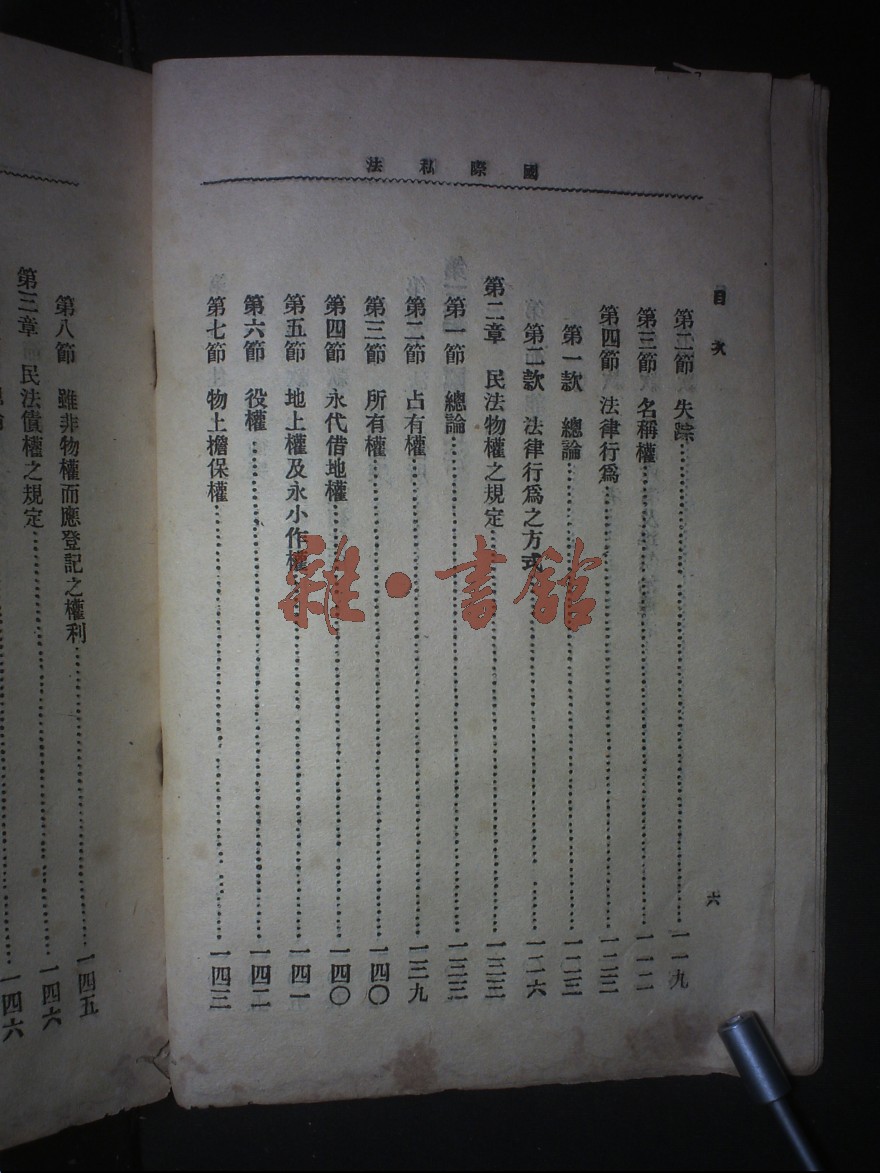 國際私法
目次
六
第二節 失踪……一一九
第三節 名稱權……一二二
第四節 法律行爲……一二三
第一款 總論……一二三
第二款 法律行爲之方式……一二六
第二章 民法物權之規定……一三三
第一節 總論……一三三
第二節 占有權……一三九
第三節 所有權……一四〇
第四節 永代借地權……一四〇
第五節 地上權及永小作權……一四一
第六節 役權……一四二
第七節 物上擔保權……一四三
雜·書館
第八節 雖非物權而應登記之權利……一四五
第三章 民法債權之規定……一四六
一四六